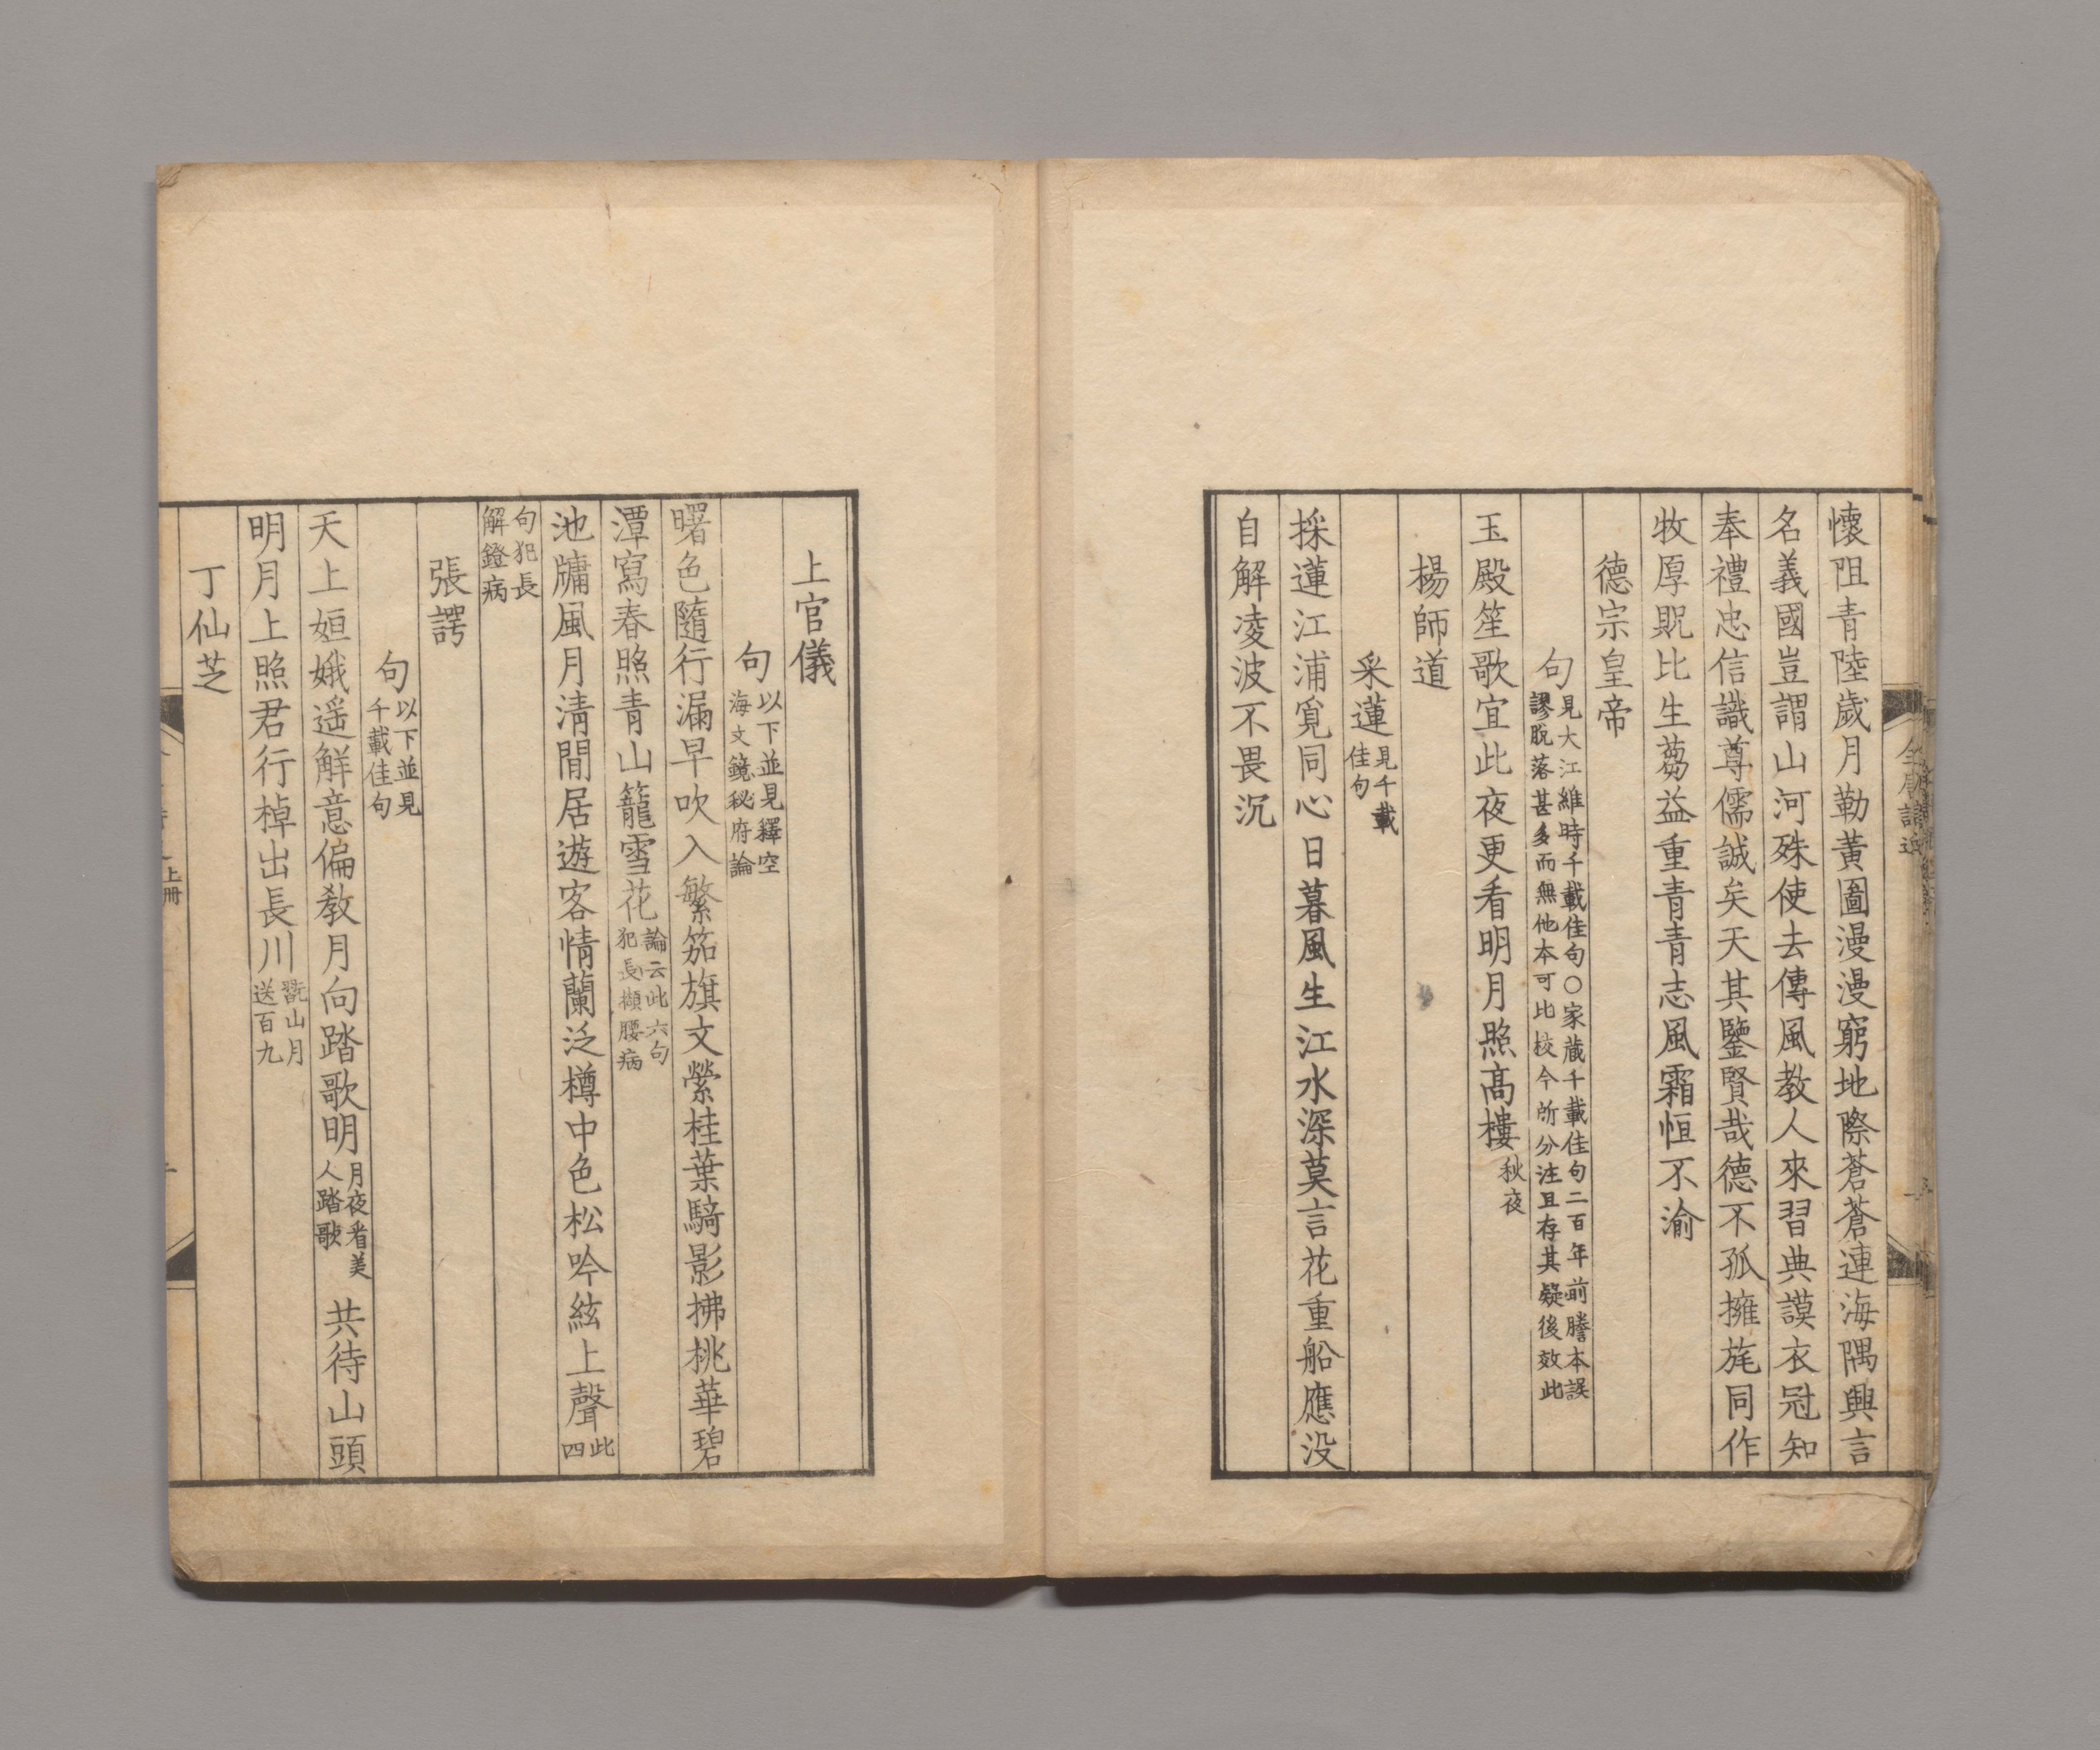 懷阻青陸歲月勒黃圖漫漫窮地際蒼蒼連海隅興言
名義國豈謂山河殊使去傳風教人來習典謨衣冠知
奉禮忠信識尊儒誠矣天其鑒賢哉德不孤擁旄同作
牧厚貺比生芻益重青青志風霜恒不渝
德宗皇帝
句見大江維時千載佳句〇家蔵千載佳句二百年前謄本誤
謬脫落甚多而無他本可比校今所分注且存其疑後效此
玉殿笙歌宜此夜更看明月照高樓秋夜
楊師道
采蓮見千載
佳句
採蓮江浦覓同心日暮風生江水深莫言花重船應没
自解凌波不畏沉
上官儀
句以下並見釋空
海文鏡秘府論
曙色隨行漏早吹入繁笳旗文縈桂葉騎影拂桃華碧
潭寫春照青山籠雪花論云此六句
犯長擷腰病
池牗風月清閒居遊客情蘭泛樽中色松吟絃上聲此
四
句犯長
解鐙病
張諤
句以下並見
千載佳句
天上姮娥遥解意偏教月向踏歌明月夜看美
人踏歌
共待山頭
明月上照君行棹出長川翫山月
送百九
丁仙芝
上冊